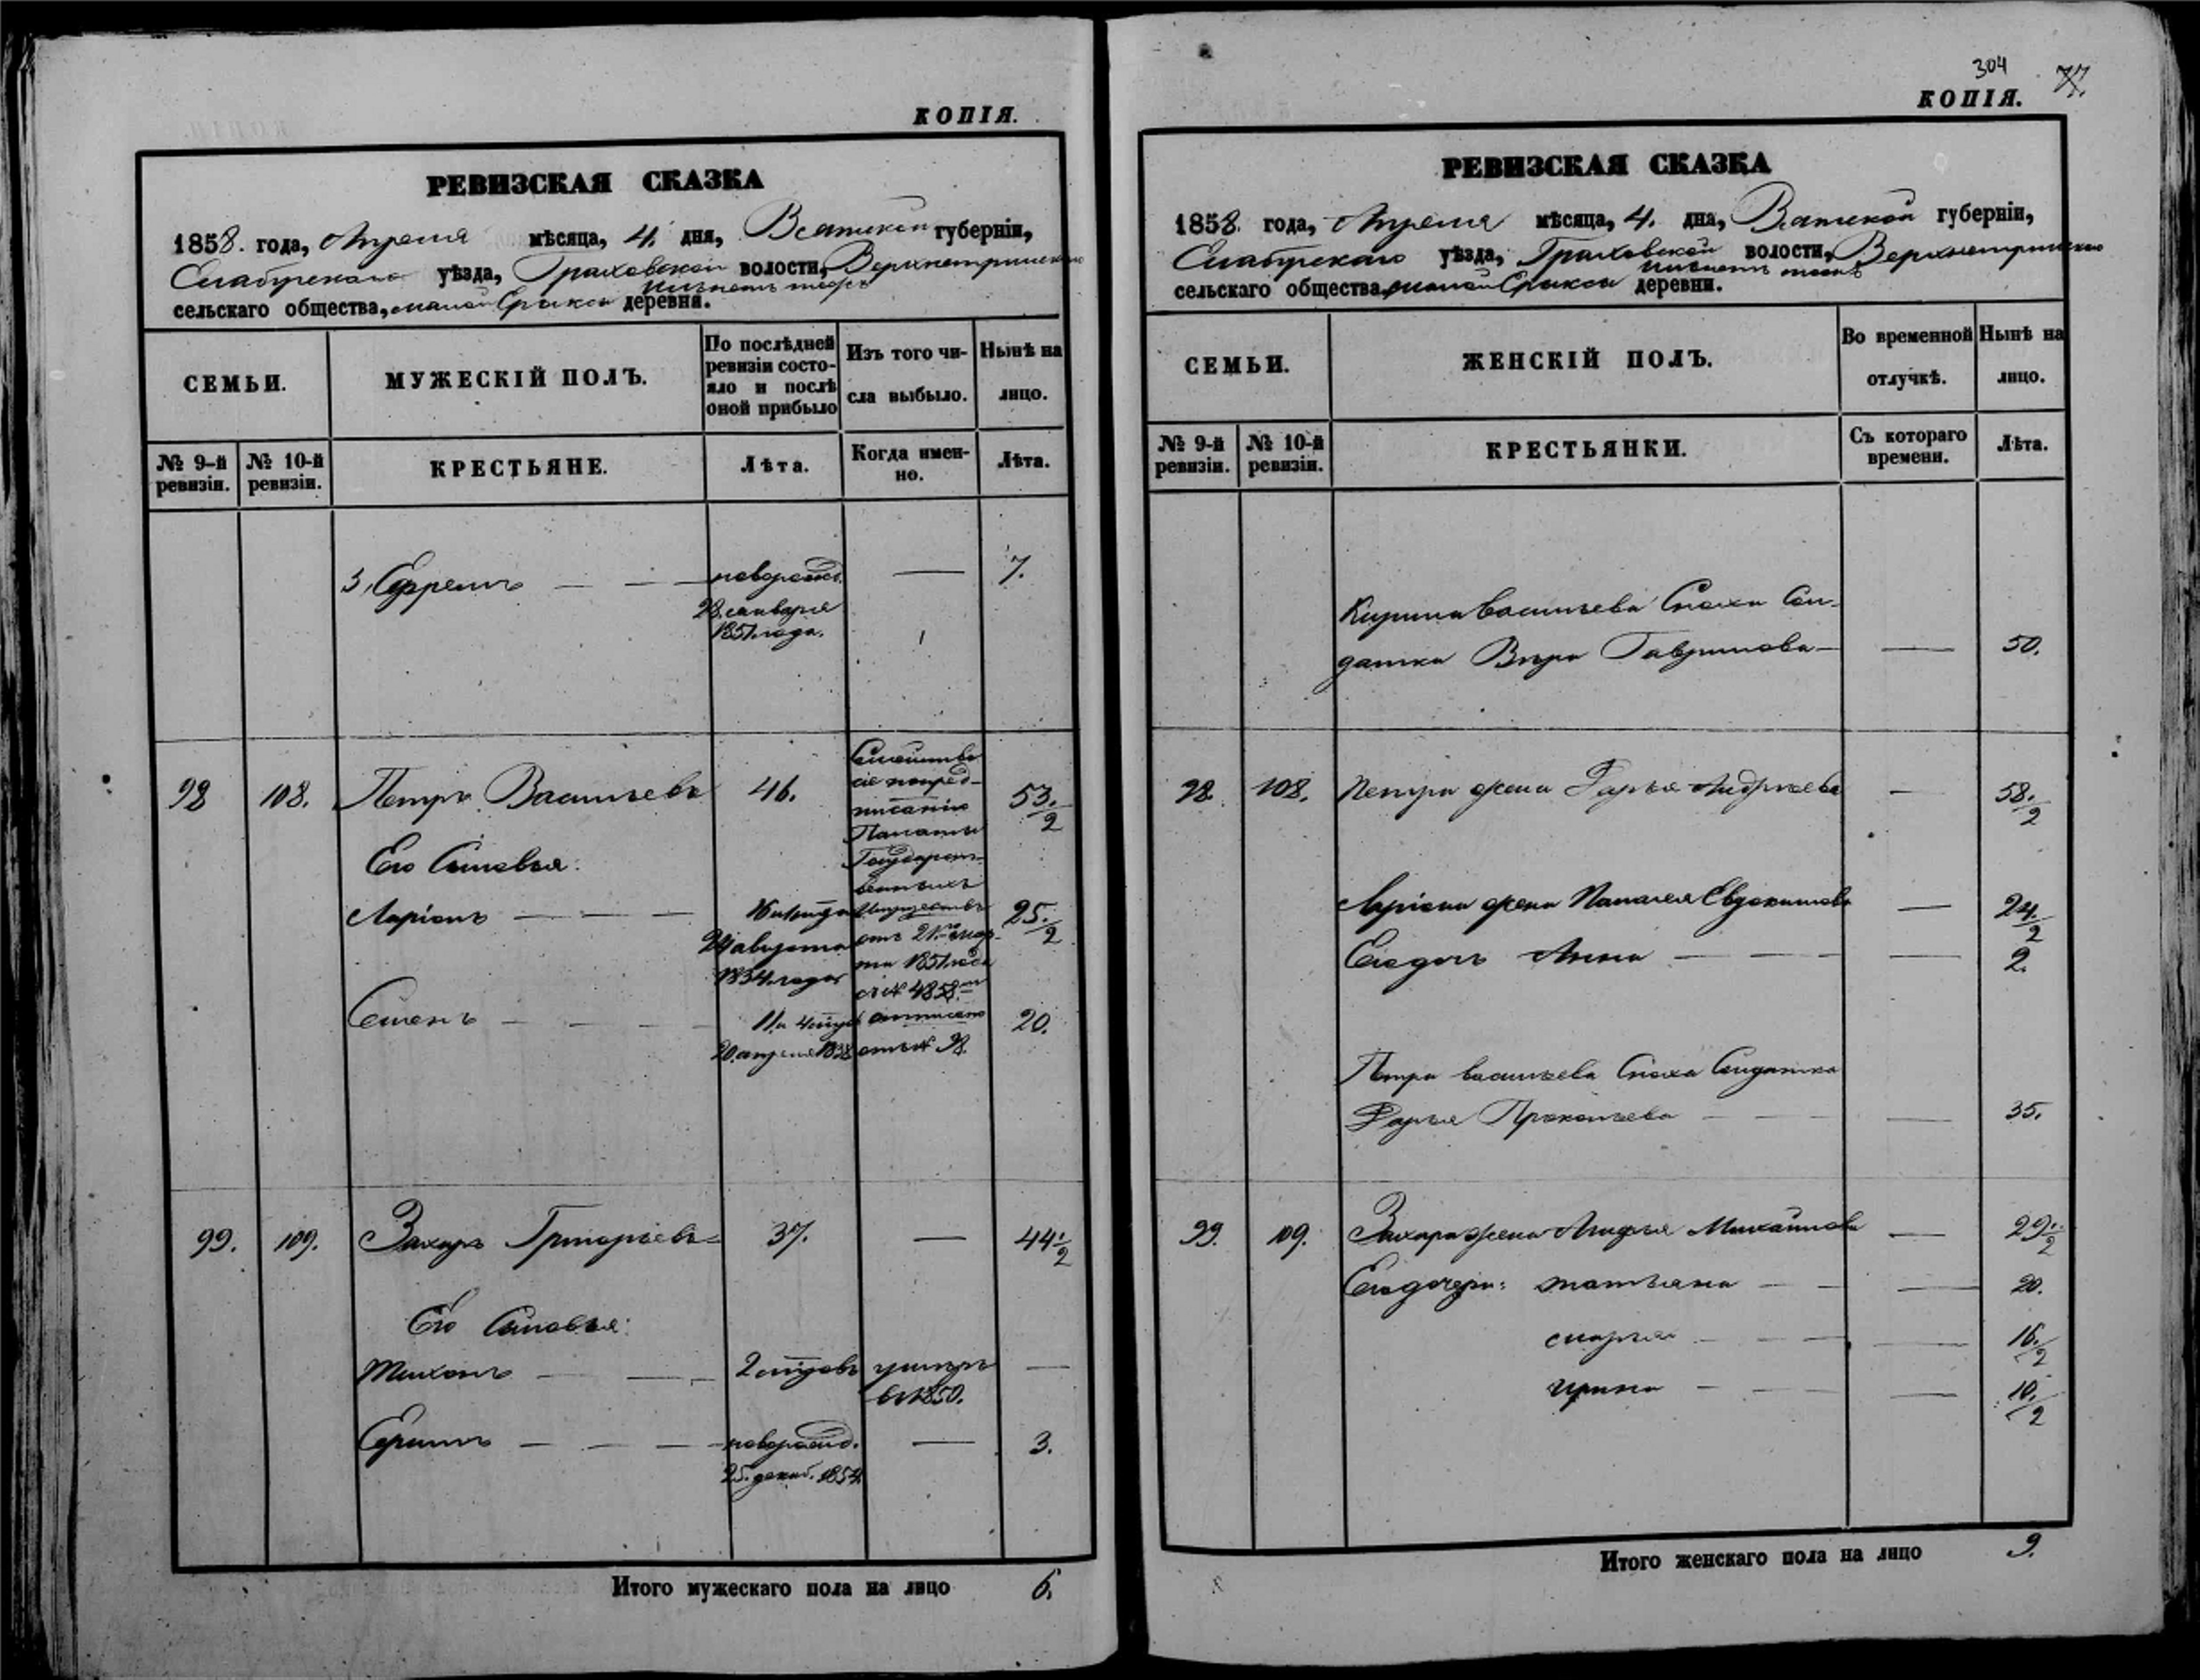 КОПІЯ.
РЕВИЗСКАЯ СКАЗКА
1858. года, Апреля мѣсяца, 4. дня, Вятской губерніи,
Елабугскаго уѣзда, Граховской волости,
сельскаго общества, малой Ерыксы деревня.
СЕМЬИ.
МУЖЕСКІЙ ПОЛЪ.
По послѣдней
ревизіи состо-
яло и послѣ
оной прибыло
Изъ того чи-
сла выбыло.
Нынѣ на
лицо.
№ 9-й
ревизіи.
№ 10-й
ревизіи.
КРЕСТЬЯНЕ.
Лѣта.
Когда имен-
но.
Лѣта.
3, Ефремъ — — — новорожд. — 7.
28. января
1851. года.
98 108. Петръ Васильевъ 46. 53. 1/2
Его Сыновья:
Ларіонъ — — — 16 25. 1/2
24 августа
1854 года
Семенъ — — — 11. и 4 20.
20. апреля
Семейство
сіе по пред-
писанію
Палаты
Государст-
венныхъ
Имуществъ
отъ 21. мар-
та 1851 года
№ 4858.
отписано
отъ № 98.
99. 109. Захаръ Григорьевъ 37. — 44 1/2
Его Сыновья:
Тихонъ — — — 2 умеръ —
въ 1850.
— — — новорожд. — 3.
25. декаб. 1854.
Итого мужескаго пола на лицо 6.
304 77.
КОПІЯ.
РЕВИЗСКАЯ СКАЗКА
1858. года, Апреля мѣсяца, 4. дня, Вятской губерніи,
Елабугскаго уѣзда, Граховской волости,
сельскаго общества, малой Ерыксы деревни.
СЕМЬИ.
ЖЕНСКІЙ ПОЛЪ.
Во временной
отлучкѣ.
Нынѣ на
лицо.
№ 9-й
ревизіи.
№ 10-й
ревизіи.
КРЕСТЬЯНКИ.
Съ котораго
времени.
Лѣта.
Кирила Васильева Сноха Сол-
датка Вѣра Гаврилова — — 50.
98. 108. Петра жена Дарья Андреева — 58. 1/2
Ларіона жена Евдокимова — 24. 1/2
Его дочь Анна — — — — 2.
Петра Васильева Сноха Солдатка
Дарья Прокопьева — — — 35.
99. 109. Захара жена Михайлова — 29. 1/2
Его дочери: Татьяна — — — 20.
Марья — — — — 16. 1/2
Ирина — — — — 10. 1/2
Итого женскаго пола на лицо 9.